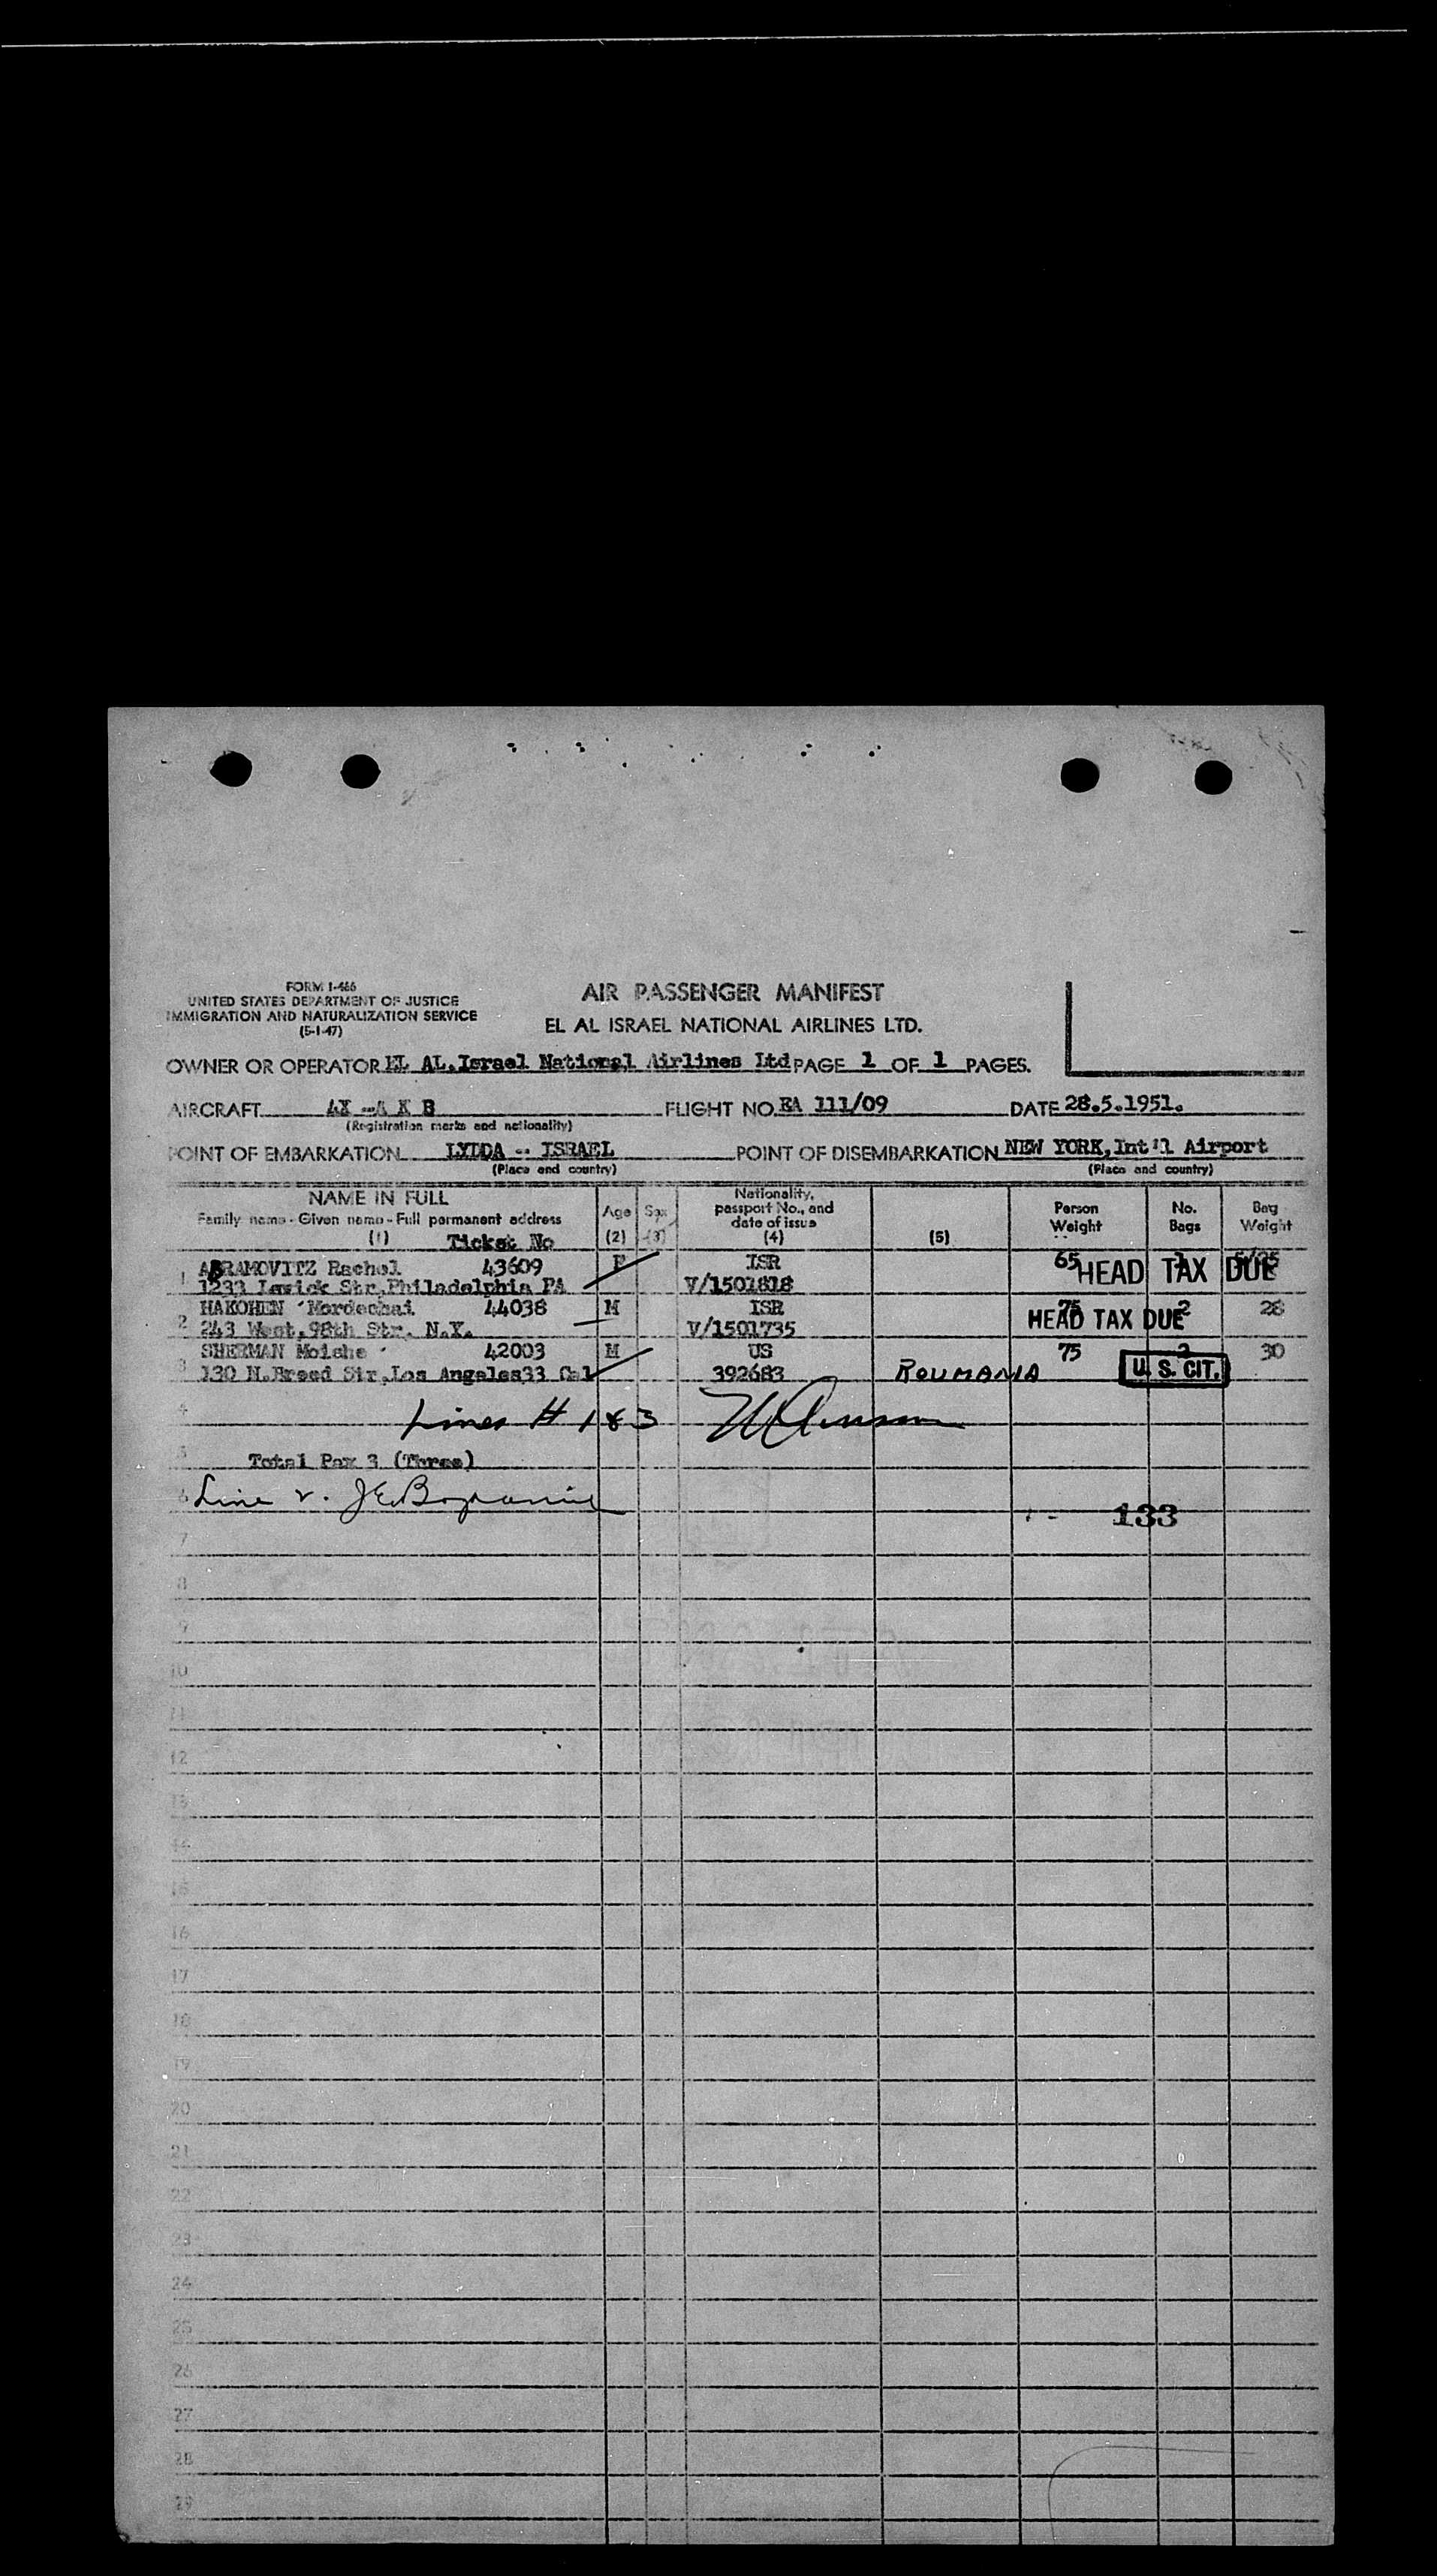 FORM I-466
UNITED STATES DEPARTMENT OF JUSTICE
IMMIGRATION AND NATURALIZATION SERVICE
(5-1-47)
AIR PASSENGER MANIFEST
EL AL ISRAEL NATIONAL AIRLINES LTD.
OWNER OR OPERATOR EL AL, Israel National Airlines Ltd PAGE 1 OF 1 PAGES.
AIRCRAFT 4X -A K B FLIGHT NO. EA 111/09 DATE 28.5.1951.
(Registration marks and nationality)
POINT OF EMBARKATION LYDDA - ISRAEL POINT OF DISEMBARKATION NEW YORK, Int'l Airport
(Place and country) (Place and country)
NAME IN FULL
Family name - Given name - Full permanent address
(1) Ticket No
Age (2)
Sex (3)
Nationality, passport No., and date of issue (4)
(5)
Person Weight
No. Bags
Bag Weight
1 ABRAMOVITZ Rachel 43609 F ISR 65 HEAD TAX DUE
1233 Str, Philadelphia PA V/1501818
2 HAKOHEN Mordechai 44038 M ISR 75 2 28
243 West, 98th Str. N.Y. V/1501735 HEAD TAX DUE
3 SHERMAN Moishe 42003 M US 75 2 30
130 N. Breed Str, Los Angeles 33 Cal 392683 ROUMANIA U. S. CIT.
4 Lines # 1 & 3
5 Total Pax 3 (Three)
6 Line 2.
133
7
8
9
10
11
12
13
14
15
16
17
18
19
20
21
22
23
24
25
26
27
28
29